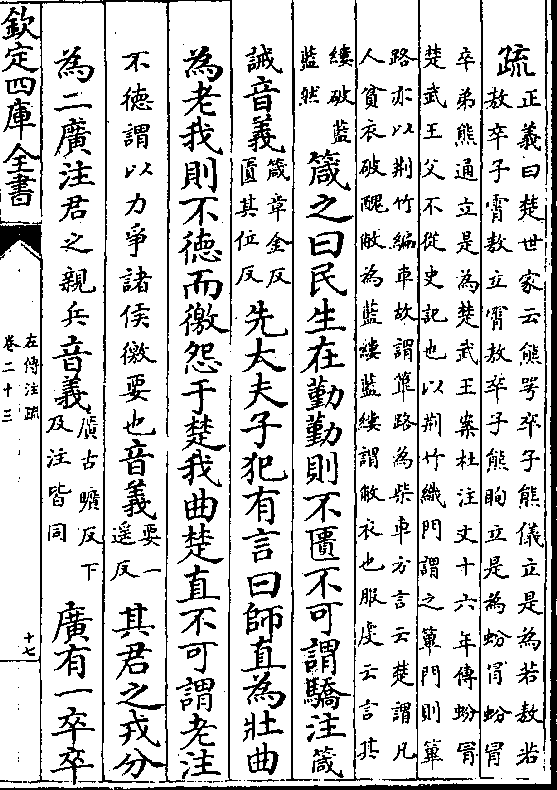 疏
正義曰楚世家云熊咢卒子熊儀立是為若敖若
敖卒子霄敖立霄敖卒子熊眴立是為蚡冐蚡冐
卒弟熊通立是為楚武王案杜注文十六年傳蚡冐
楚武王父不從史記也以荆竹織門謂之篳門則篳
路亦以荆竹編車故謂篳路為柴車方言云楚謂凡
人貧衣破醜敝為藍縷藍縷謂敝衣也服䖍云言其
縷破藍
藍然
箴之曰民生在勤勤則不匱不可謂驕注箴
誡音義
箴章金反
匱其位反
先大夫子犯有言曰師直為壯曲
為老我則不徳而徼怨于楚我曲楚直不可謂老注
不徳謂以力爭諸侯徼要也音義
要一
遥反
其君之戎分
為二廣注君之親兵音義
廣古曠反下
及注皆同
廣有一卒卒
欽定四庫全書
左傳注疏
卷二十三
十七